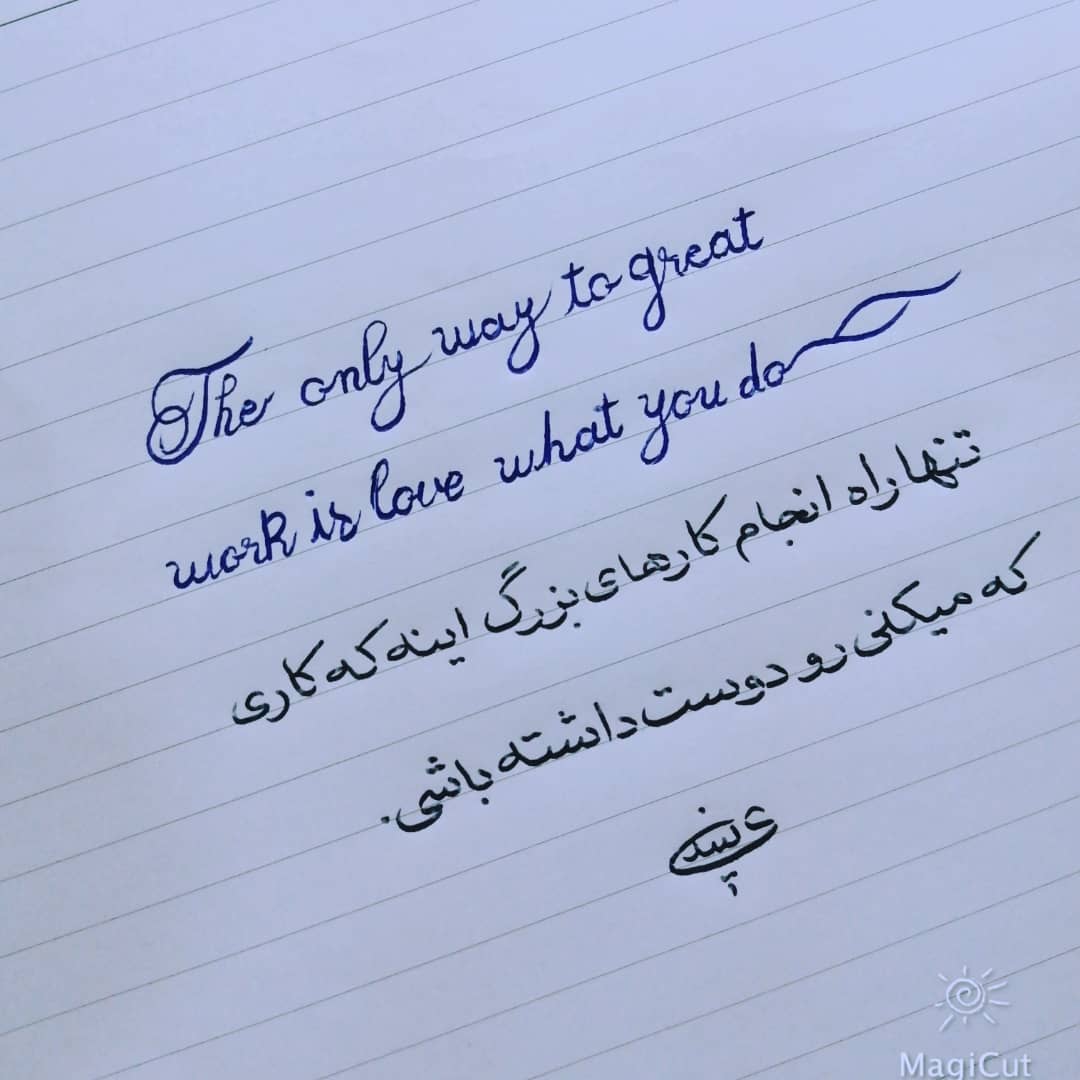 The only way to great
work is love what you do
تنها راه انجام کارهای بزرگ اینه که کاری
که میکنی رو دوست داشته باشی.
MagiCut